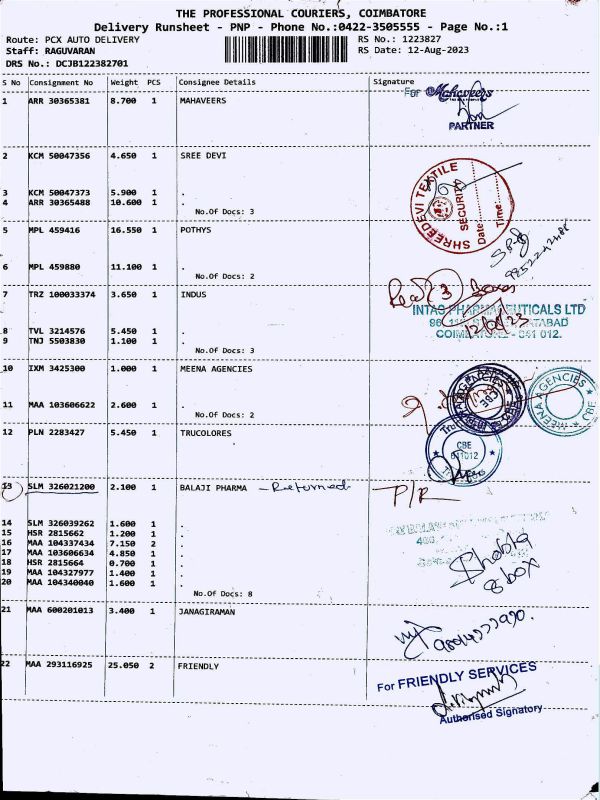 THE PROFESSIONAL COURIERS, COIMBATORE
Delivery Runsheet - PNP - Phone No.:0422-3505555 - Page No.:1
Route: PCX AUTO DELIVERY RS No.: 1223827
Staff: RAGUVARAN RS Date: 12-Aug-2023
DRS No.: DCJB122382701
S No Consignment No Weight PCS Consignee Details Signature
For Mahaveers
1 ARR 30365381 8.700 1 MAHAVEERS
PARTNER
2 KCM 50047356 4.650 1 SREE DEVI
3 KCM 50047373 5.900 1 .
4 ARR 30365488 10.600 1 .
No.Of Docs: 3
SHREEDEVI TEXTILE
SECURITY
Date
Time
5 MPL 459416 16.550 1 POTHYS
6 MPL 459880 11.100 1 .
No.Of Docs: 2
7 TRZ 100033374 3.650 1 INDUS
Recd 3 Boxes
INTAS PHARMACEUTICALS LTD
12/08/23
COIMBATORE - 641 012.
8 TVL 3214576 5.450 1 .
9 TNJ 5503830 1.100 1 .
No.Of Docs: 3
10 IXM 3425300 1.000 1 MEENA AGENCIES
MEENA AGENCIES
CBE
11 MAA 103606622 2.600 1 .
No.Of Docs: 2
12 PLN 2283427 5.450 1 TRUCOLORES
CBE
641012
13 SLM 326021200 2.100 1 BALAJI PHARMA - Returned P/R
14 SLM 326039262 1.600 1 .
15 HSR 2815662 1.200 1 .
16 MAA 104337434 7.150 2 .
17 MAA 103606634 4.850 1 .
18 HSR 2815664 0.700 1 .
19 MAA 104327977 1.400 1 .
20 MAA 104340040 1.600 1 .
No.Of Docs: 8
8 box
21 MAA 600201013 3.400 1 JANAGIRAMAN
22 MAA 293116925 25.050 2 FRIENDLY
For FRIENDLY SERVICES
Authorised Signatory